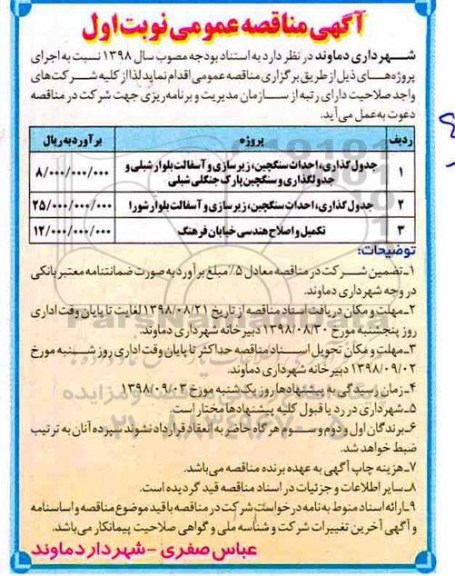 آگهی مناقصه عمومی نوبت اول
شهرداری دماوند در نظر دارد به استناد بودجه مصوب سال ۱۳۹۸ نسبت به اجرای
پروژه‌های ذیل از طریق برگزاری مناقصه عمومی اقدام نماید لذا از کلیه شرکت‌های
واجد صلاحیت دارای رتبه از سازمان مدیریت و برنامه‌ریزی جهت شرکت در مناقصه
دعوت به عمل می‌آید.
ردیف پروژه برآورد به ریال
۱ جدول گذاری، احداث سنگچین، زیرسازی و آسفالت بلوار شبلی و
جدولگذاری و سنگچین پارک جنگلی شبلی ۸/۰۰۰/۰۰۰/۰۰۰
۲ جدول گذاری، احداث سنگچین، زیرسازی و آسفالت بلوار شورا ۲۵/۰۰۰/۰۰۰/۰۰۰
۳ تکمیل و اصلاح هندسی خیابان فرهنگ ۱۲/۰۰۰/۰۰۰/۰۰۰
توضیحات:
۱-تضمین شرکت در مناقصه معادل ۵٪ مبلغ برآورد به صورت ضمانتنامه معتبر بانکی
در وجه شهرداری دماوند.
۲-مهلت و مکان دریافت اسناد مناقصه از تاریخ ۱۳۹۸/۰۸/۲۱ لغایت تا پایان وقت اداری
روز پنجشنبه مورخ ۱۳۹۸/۰۸/۳۰ دبیرخانه شهرداری دماوند.
۳-مهلت و مکان تحویل اسناد مناقصه حداکثر تا پایان وقت اداری روز شنبه مورخ
۱۳۹۸/۰۹/۰۲ دبیرخانه شهرداری دماوند.
۴-زمان رسیدگی به پیشنهادها روز یک شنبه مورخ ۱۳۹۸/۰۹/۰۳
۵-شهرداری در رد یا قبول کلیه پیشنهادها مختار است.
۶-برندگان اول و دوم و سوم هرگاه حاضر به انعقاد قرارداد نشوند سپرده آنان به ترتیب
ضبط خواهد شد.
۷-هزینه چاپ آگهی به عهده برنده مناقصه می‌باشد.
۸-سایر اطلاعات و جزئیات در اسناد مناقصه قید گردیده است.
۹-ارائه اسناد منوط به نامه درخواست شرکت در مناقصه با قید موضوع مناقصه و اساسنامه
و آگهی آخرین تغییرات شرکت و شناسه ملی و گواهی صلاحیت پیمانکار می‌باشد.
عباس صفری - شهردار دماوند